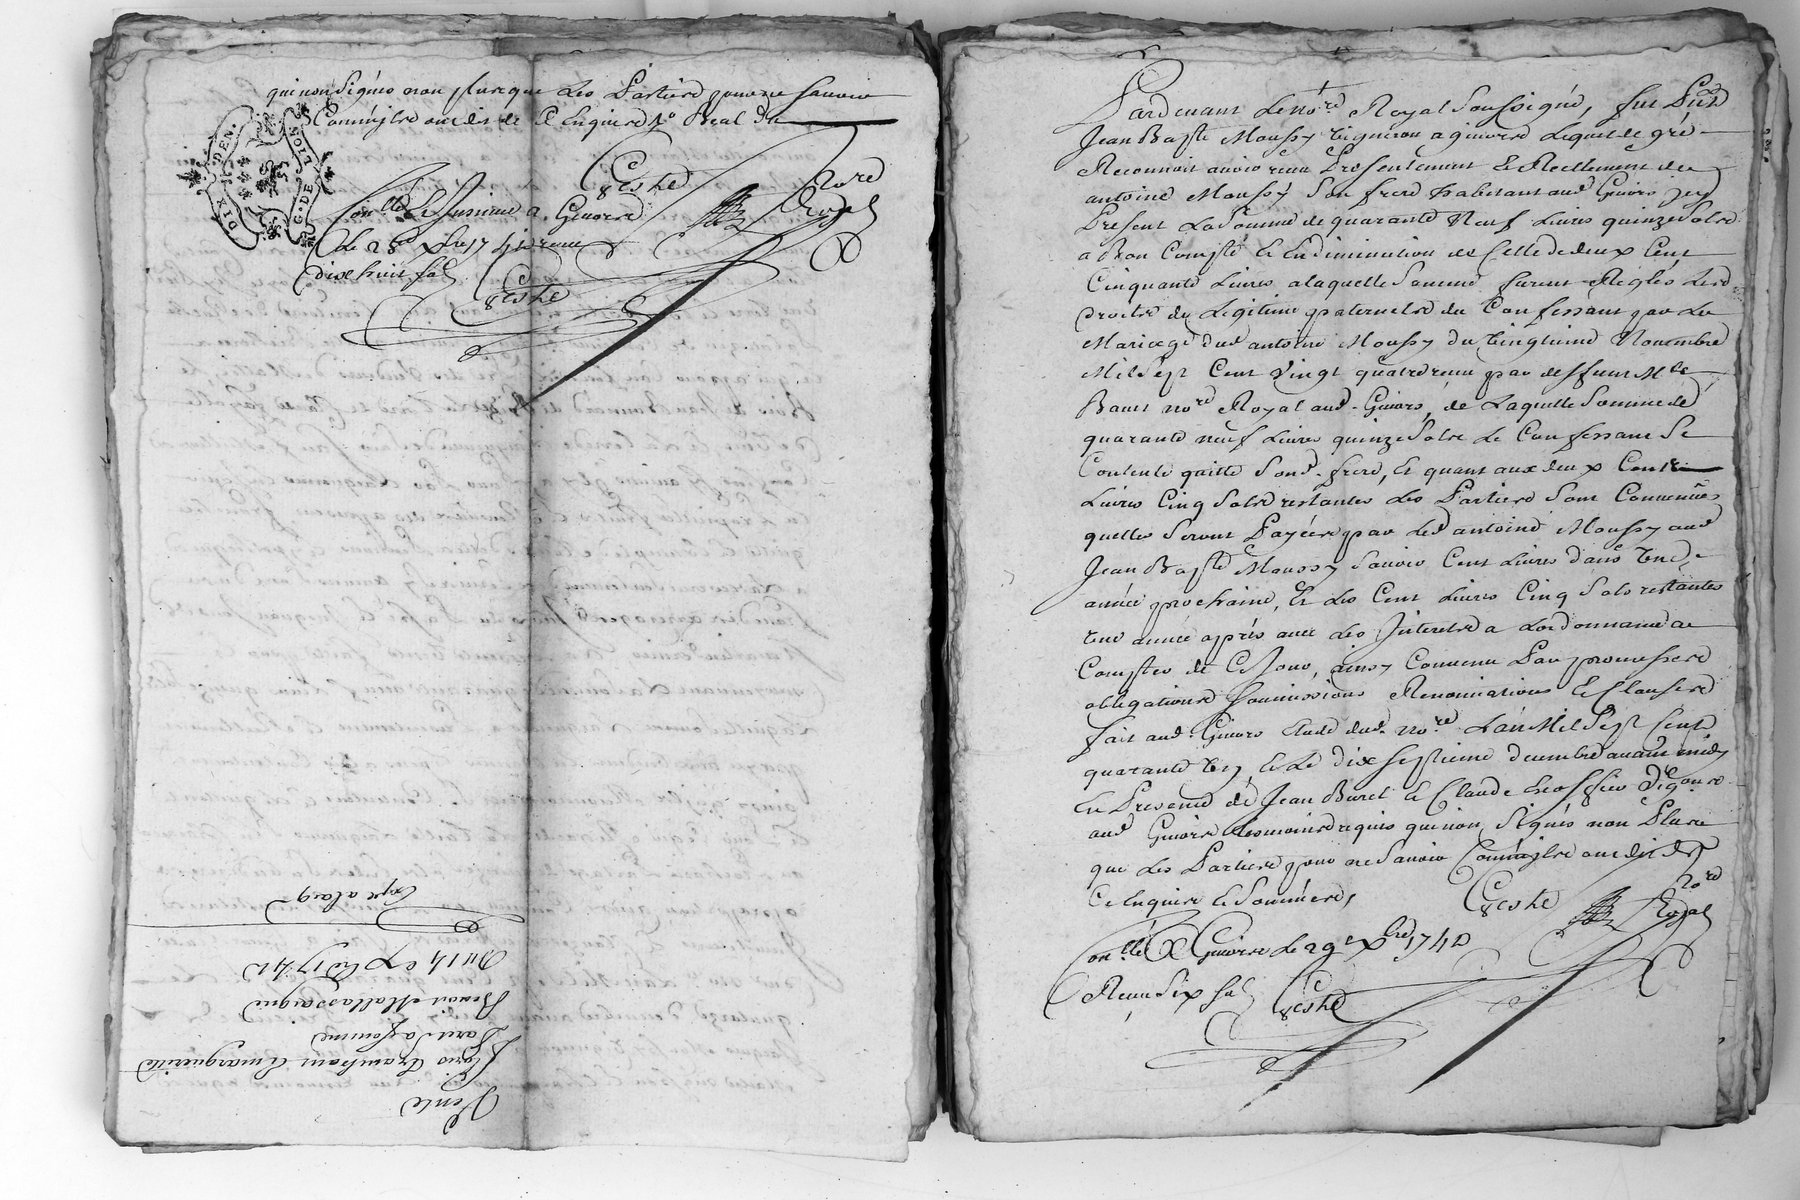 qui non signés non plus que les Parties pour ne sçavoir
Connoistre ont dit de Ce Enquis 
DIX DEN.
G. DE LION
Geste
Nore
Royal
Conllé & Insinué a Givors
le 28e Xbre 1741 reçeu
dixhuit sols
Geste
Expé a larg
Du 14 Xbre 1741
Benoit Mallassaigne
sa femme
marguerite
Vente
Pardevant le Nore Royal Soussigné, fut Pnt
Jean Bapte Moussy vigneron a givors Lequel de gré
Reconnoit avoir reçu Presentement et Réellement de
antoine Moussy Son frere habitant aud Givors icy
Present La Somme de quarante Neuf Livres quinze Sols
a Bon Compte et En diminution de Celle de deux Cent
Cinquante Livres a laquelle Somme furent Réglés Les
droits de Légitime paternels du Confessant par Le
Mariage dud antoine Moussy du vingtieme Novembre
Mil Sept Cent Vingt quatre reçu par deffunt Me
nore Royal aud. Givors, de Laquelle Somme de
quarante neuf Livres quinze Sols Le Confessant Se
Contente quitte Sond. frere, Et quant aux deux Cent
Livres Cinq Sols restantes Les Parties Sont Convenües
quelles Seront Payées par Led antoine Moussy aud
Jean Bapte Moussy Sçavoir Cent Livres dans une
année prochaine, Et Les Cent Livres Cinq Sols restantes
une année aprés avec Les Interets a Lordonnance a
Compter de Ce Jour, ainsy Convenu Par promesses
obligations Soumissions Renonciations Et Clauses
fait aud. Givors Etude dud. nore. L'an Mil Sept Cent
quarante un, Et Le dix septieme decembre avant midy
En Presence de Jean Buret Et Claude
aud Givors Temoins requis qui non Signés non Plus
que Les Parties pour ne Sçavoir Connoistre ont dit de
Ce Enquis Et Sommés,
Geste
Nore
Royal
Conllé A Givors Le 29e Xbre 1741
Reçu Six sols
Geste